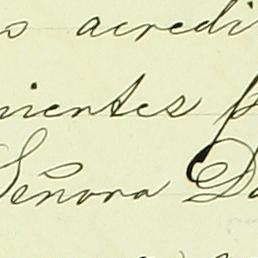 s acredi
nientes f
Señora Do